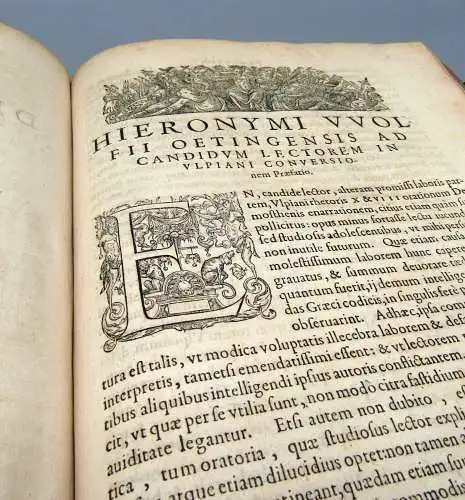 HIERONYMI VVOL
FII OETINGENSIS AD
CANDIDVM LECTOREM IN
VLPIANI CONVERSIO-
nem Præfatio.
EN, candide lector, alteram promissi laboris par-
tem, Vlpiani rhetoris X & VIII orationum De
mosthenis enarrationem, citius etiam quàm
pollicitus: opus minus fortasse lectu iucund
sed studiosis adolescentibus, vt mihi persua
non inutile futurum. Quæ etiam cau
molestissimum laborem hunc cap
grauatus, & summum deuorare tæ
quantum fuerit, ij demum intellige
das Græci codicis, in singulis ferè
obseruarint. Adhæc, ipsa com
tura est talis, vt modica voluptatis illecebra laborem & def
interpretis, tametsi emendatissimi essent: & vt lectorem
tibus aliquibus intelligendi ipsius autoris conflictantem,
cit, vt quæ per se vtilia sunt, non modò citra fastidium
auiditate legantur. Etsi autem non dubito,
tica, tum oratoria, quæ studiosus lector expli
atque etiam dilucidius optet: non tamen
erint, quàm